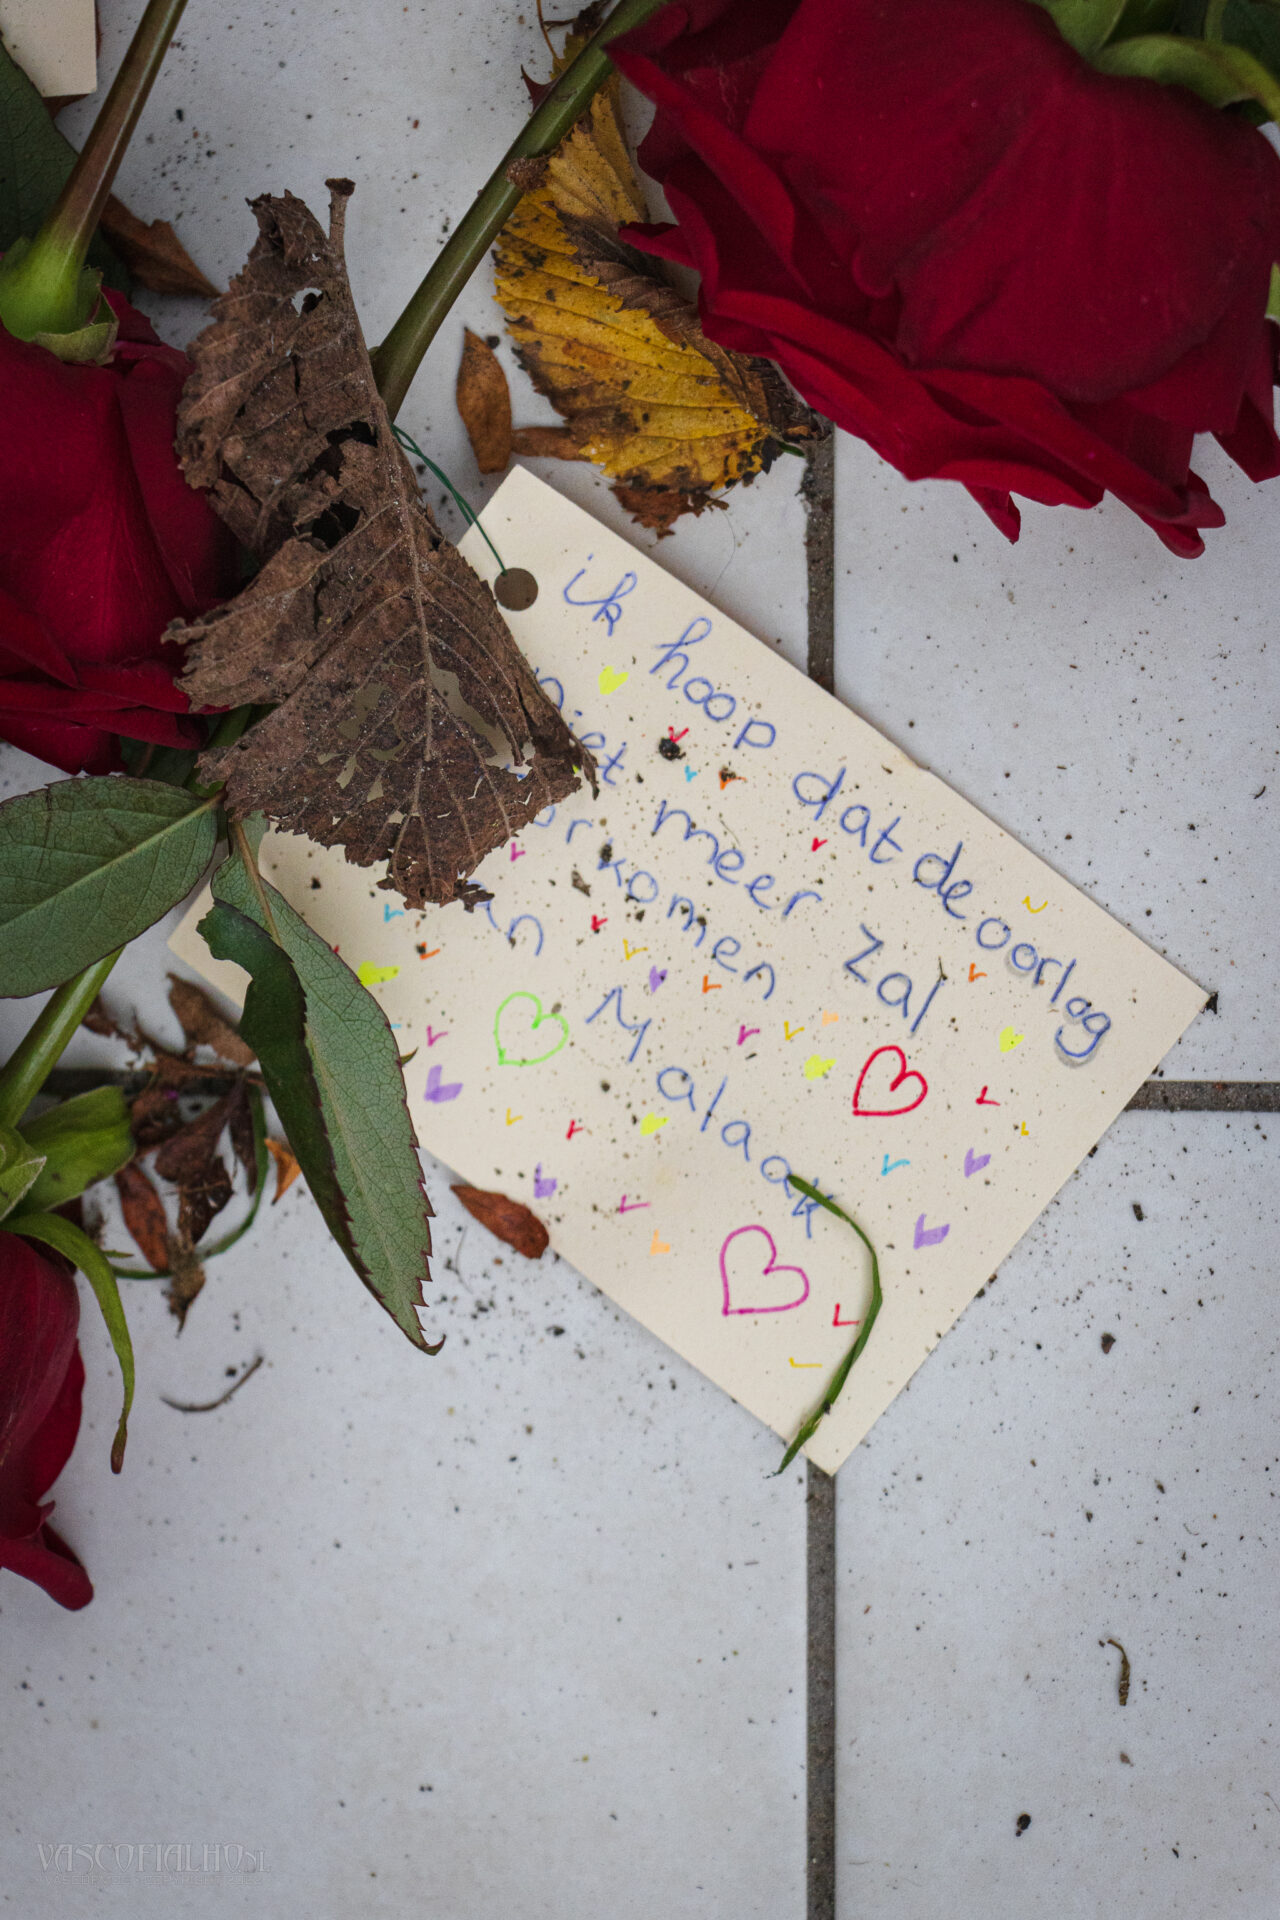 ik hoop dat de oorlog
niet meer zal
orkomen
an Malaak
VASCOFIALHO.NL